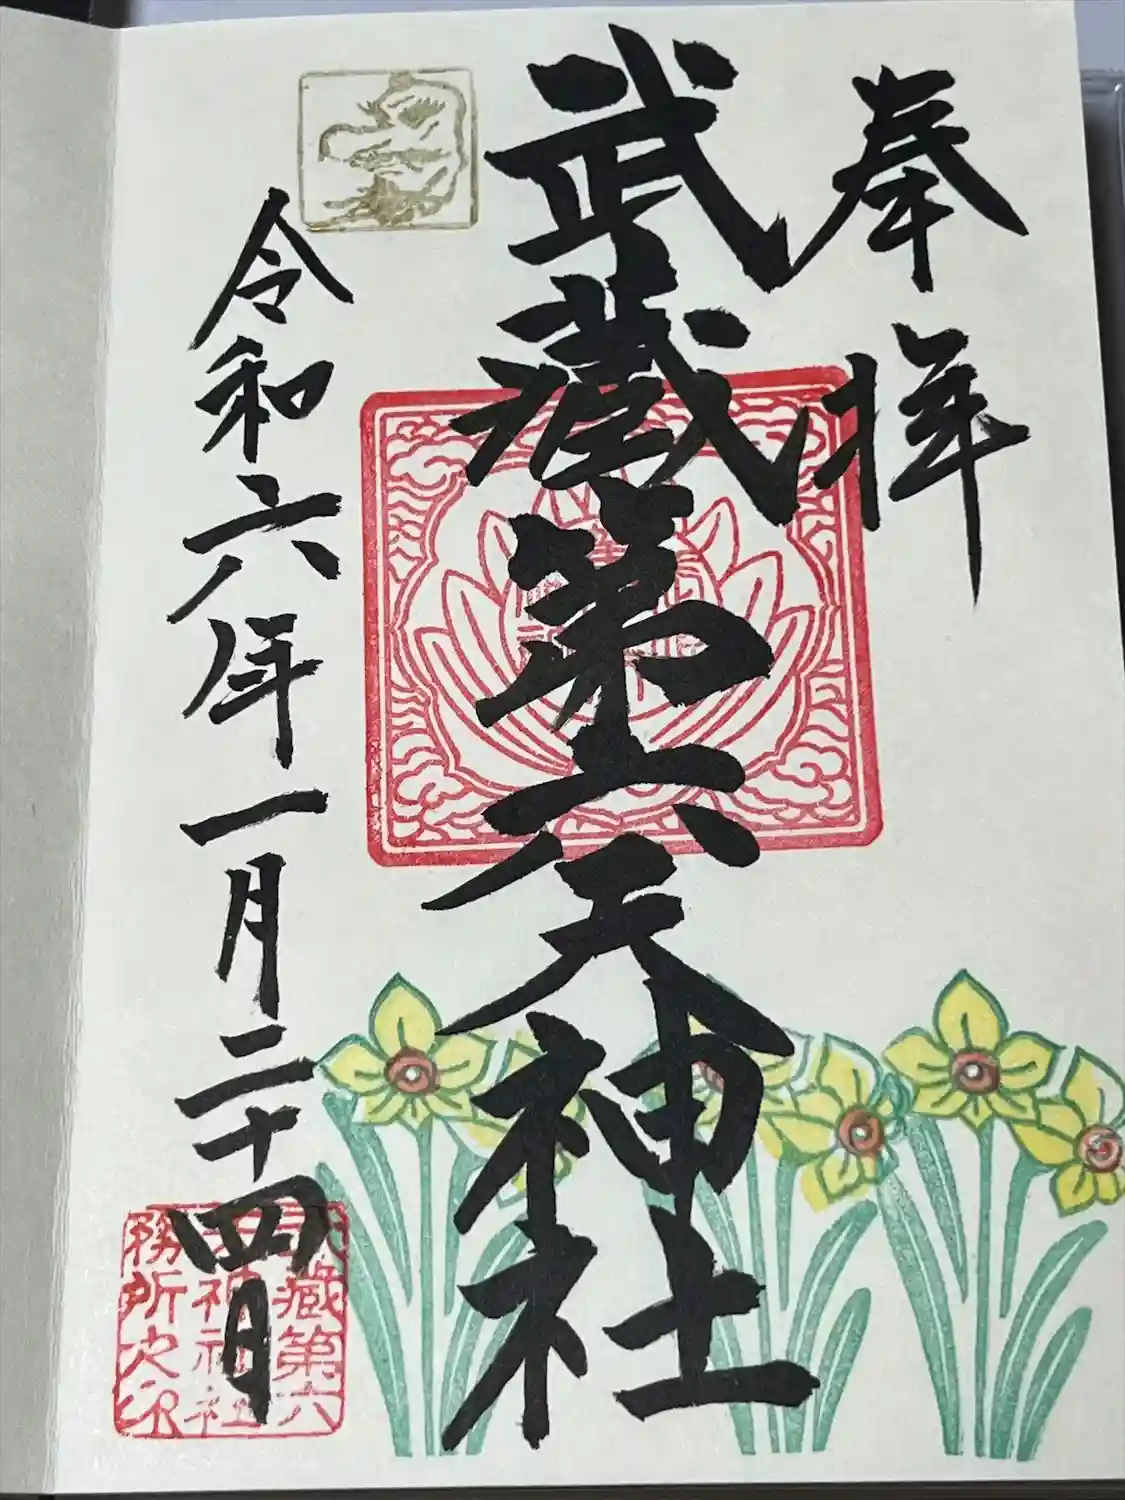 奉拝
武蔵第六天神社
令和六年一月二十四日
武蔵第六
天神社社
務所之印